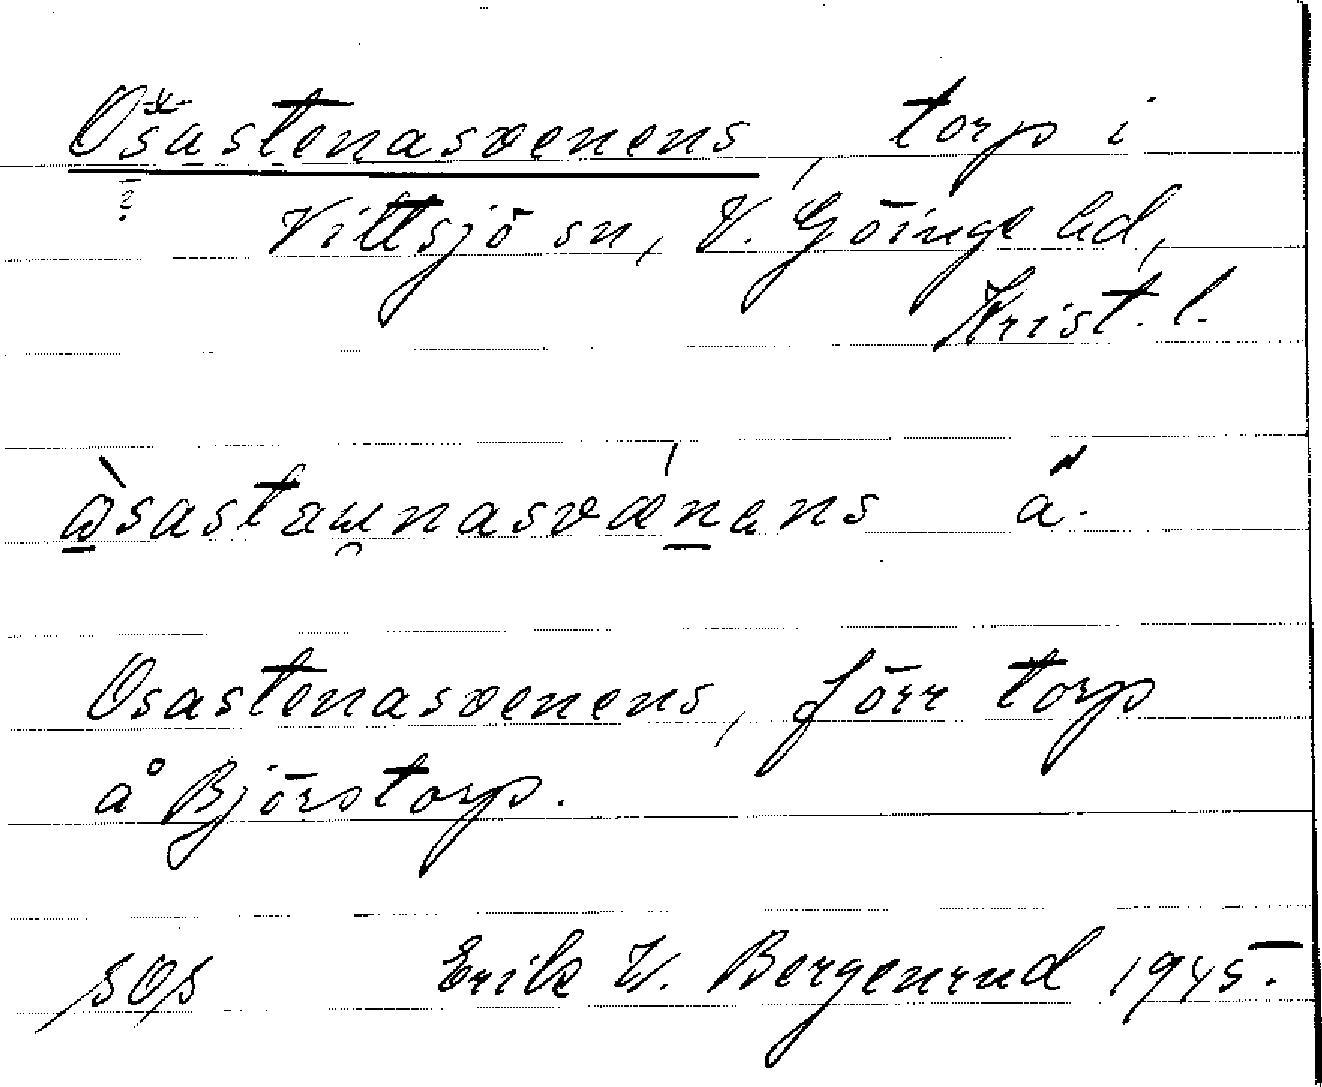 Osastenasvenens, torp i
?
Vittsjö sn, V. Göinge hd,
Krist. l.
àsastau̯nasvænens á.
Osastenasvenens, förr torp
å Björstorp.
SOS Erik W. Bergenrud 1945.